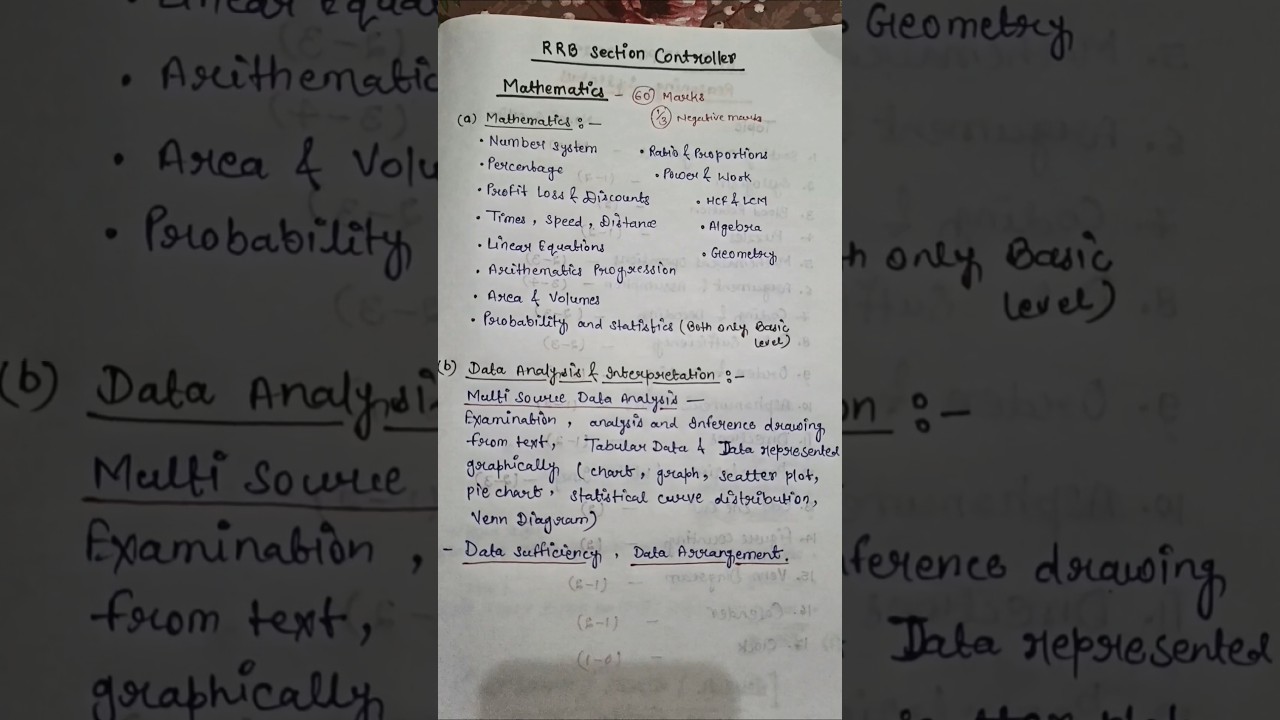 RRB Section Controller
Mathematics - 60 Marks
1/3 Negative marks
(a) Mathematics :-
• Number system • Ratio & Proportions
• Percentage • Power & Work
• Profit Loss & Discounts • HCF & LCM
• Times, Speed, Distance • Algebra
• Linear Equations • Geometry
• Arithematics Progression
• Area & Volumes
• Probability and Statistics (Both only Basic
level)
(b) Data Analysis & Interpretation :-
Multi Source Data Analysis -
Examination, analysis and Inference drawing
from text, Tabular Data & Data represented
graphically (chart, graph, scatter plot,
pie chart, statistical curve distribution,
Venn Diagram)
- Data Sufficiency, Data Arrangement.